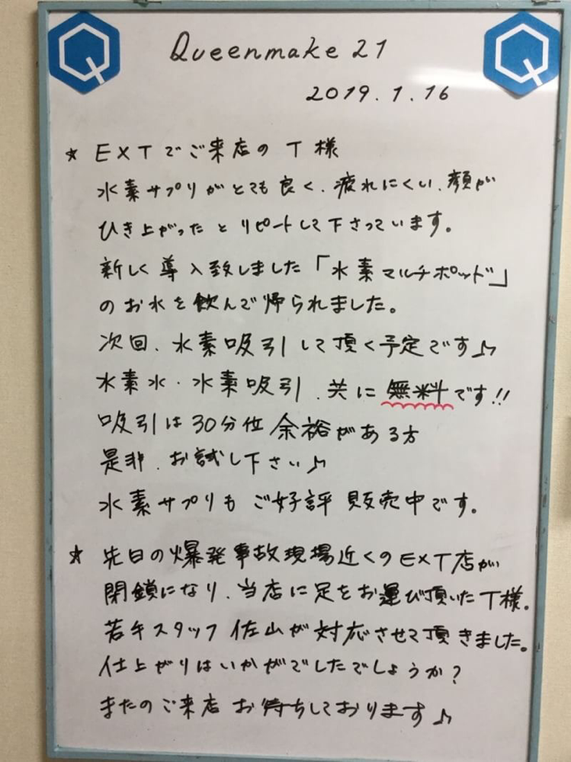 Queenmake 21
2019.1.16
★ EXTでご来店の T様
水素サプリがとても良く、疲れにくい、顔が
ひき上がった とリピートして下さっています。
新しく導入致しました「水素マルチポッド」
のお水を飲んで帰られました。
次回、水素吸引して頂く予定です♪
水素水・水素吸引、共に無料です!!
吸引は30分位 余裕がある方
是非、お試し下さい♪
水素サプリも ご好評 販売中です。
★ 先日の爆発事故現場近くのEXT店が
閉鎖になり、当店に足をお運び頂いたT様。
若手スタッフ 佐山が対応させて頂きました。
仕上がりはいかがでしたでしょうか?
またのご来店 お待ちしております♪